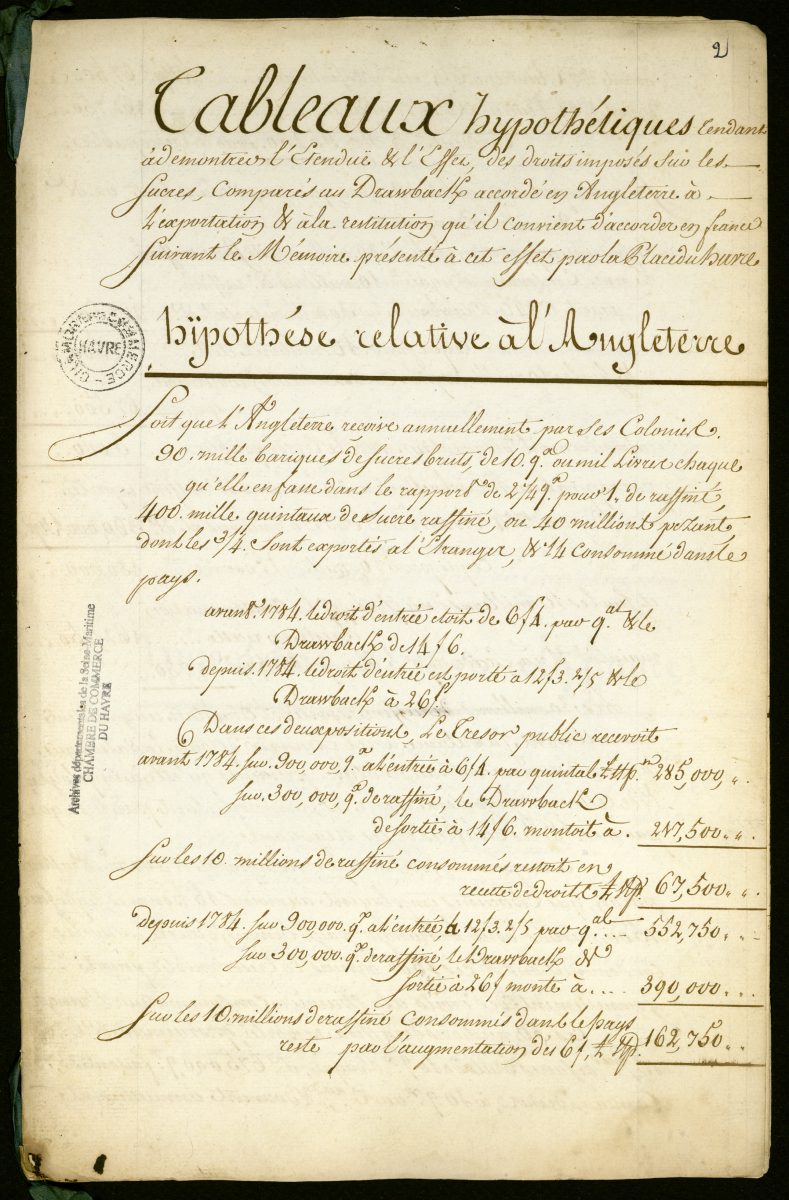 2
Tableaux hypothétiques tendant
à demontrer l'Etenduë & l'Effet, des droits imposés sur les
Sucres, Comparés au Drawback accordé en Angleterre à
L'exportation & à la restitution qu'il convient d'accorder en france
Suivant le Mémoire présenté à cet effet par la Place du havre
CHAMBRE DE COMMERCE
HAVRE
hÿpothése relative à l'Angleterre
Soit que l'Angleterre recoive annuellement par Ses Colonies
90. mille bariques de Sucres bruts, de 10. q.x ou mil Livres chaque
qu'elle en fasse dans le rapport de 2 1/4 q.x pour 1. de raffiné,
400. mille quintaux de Sucre raffiné, ou 40 millions pezant,
dont les 3/4. Sont exportés a l'Etranger, & 1/4 Consommé dans le
pays.
avant 1784. le droit d'entrée etoit de 6/4. par q.al & le
Drawback de 14/6.
depuis 1784. le droit d'entrée est porté a 12/3. 2/5 & le
Drawback à 26/.
Dans ces deux positions, Le Tresor public recevoit
avant 1784. sur. 900,000, q.x a l'entrée à 6/4. par quintal 285,000,,.
Sur. 300,000, q.x de raffiné, le Drawback
de Sortie à 14/6. montoit à. 217,500,,.
Sur les 10. millions de raffiné consommés restoit en
recette de droits 67,500,,.
Depuis 1784. sur 900,000. q.x a l'entrée à 12/3. 2/5 par q.al .... 552,750,,.
Sur 300,000. q.x de raffiné, le Drawback de
Sortie à 26/ monte à .... 390,000...
Sur les 10. millions de raffiné Consommés dans le pays
reste par l'augmentation des 6/, 162,750,,.
Archives départementales de la Seine-Maritime
CHAMBRE DE COMMERCE
DU HAVRE